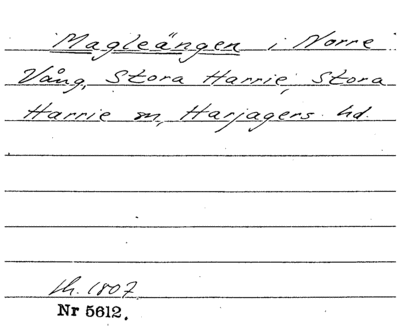 Magleängen i Norre
Vång, Stora Harrie, Stora
Harrie sn, Harjagers hd.
1807
Nr 5612.